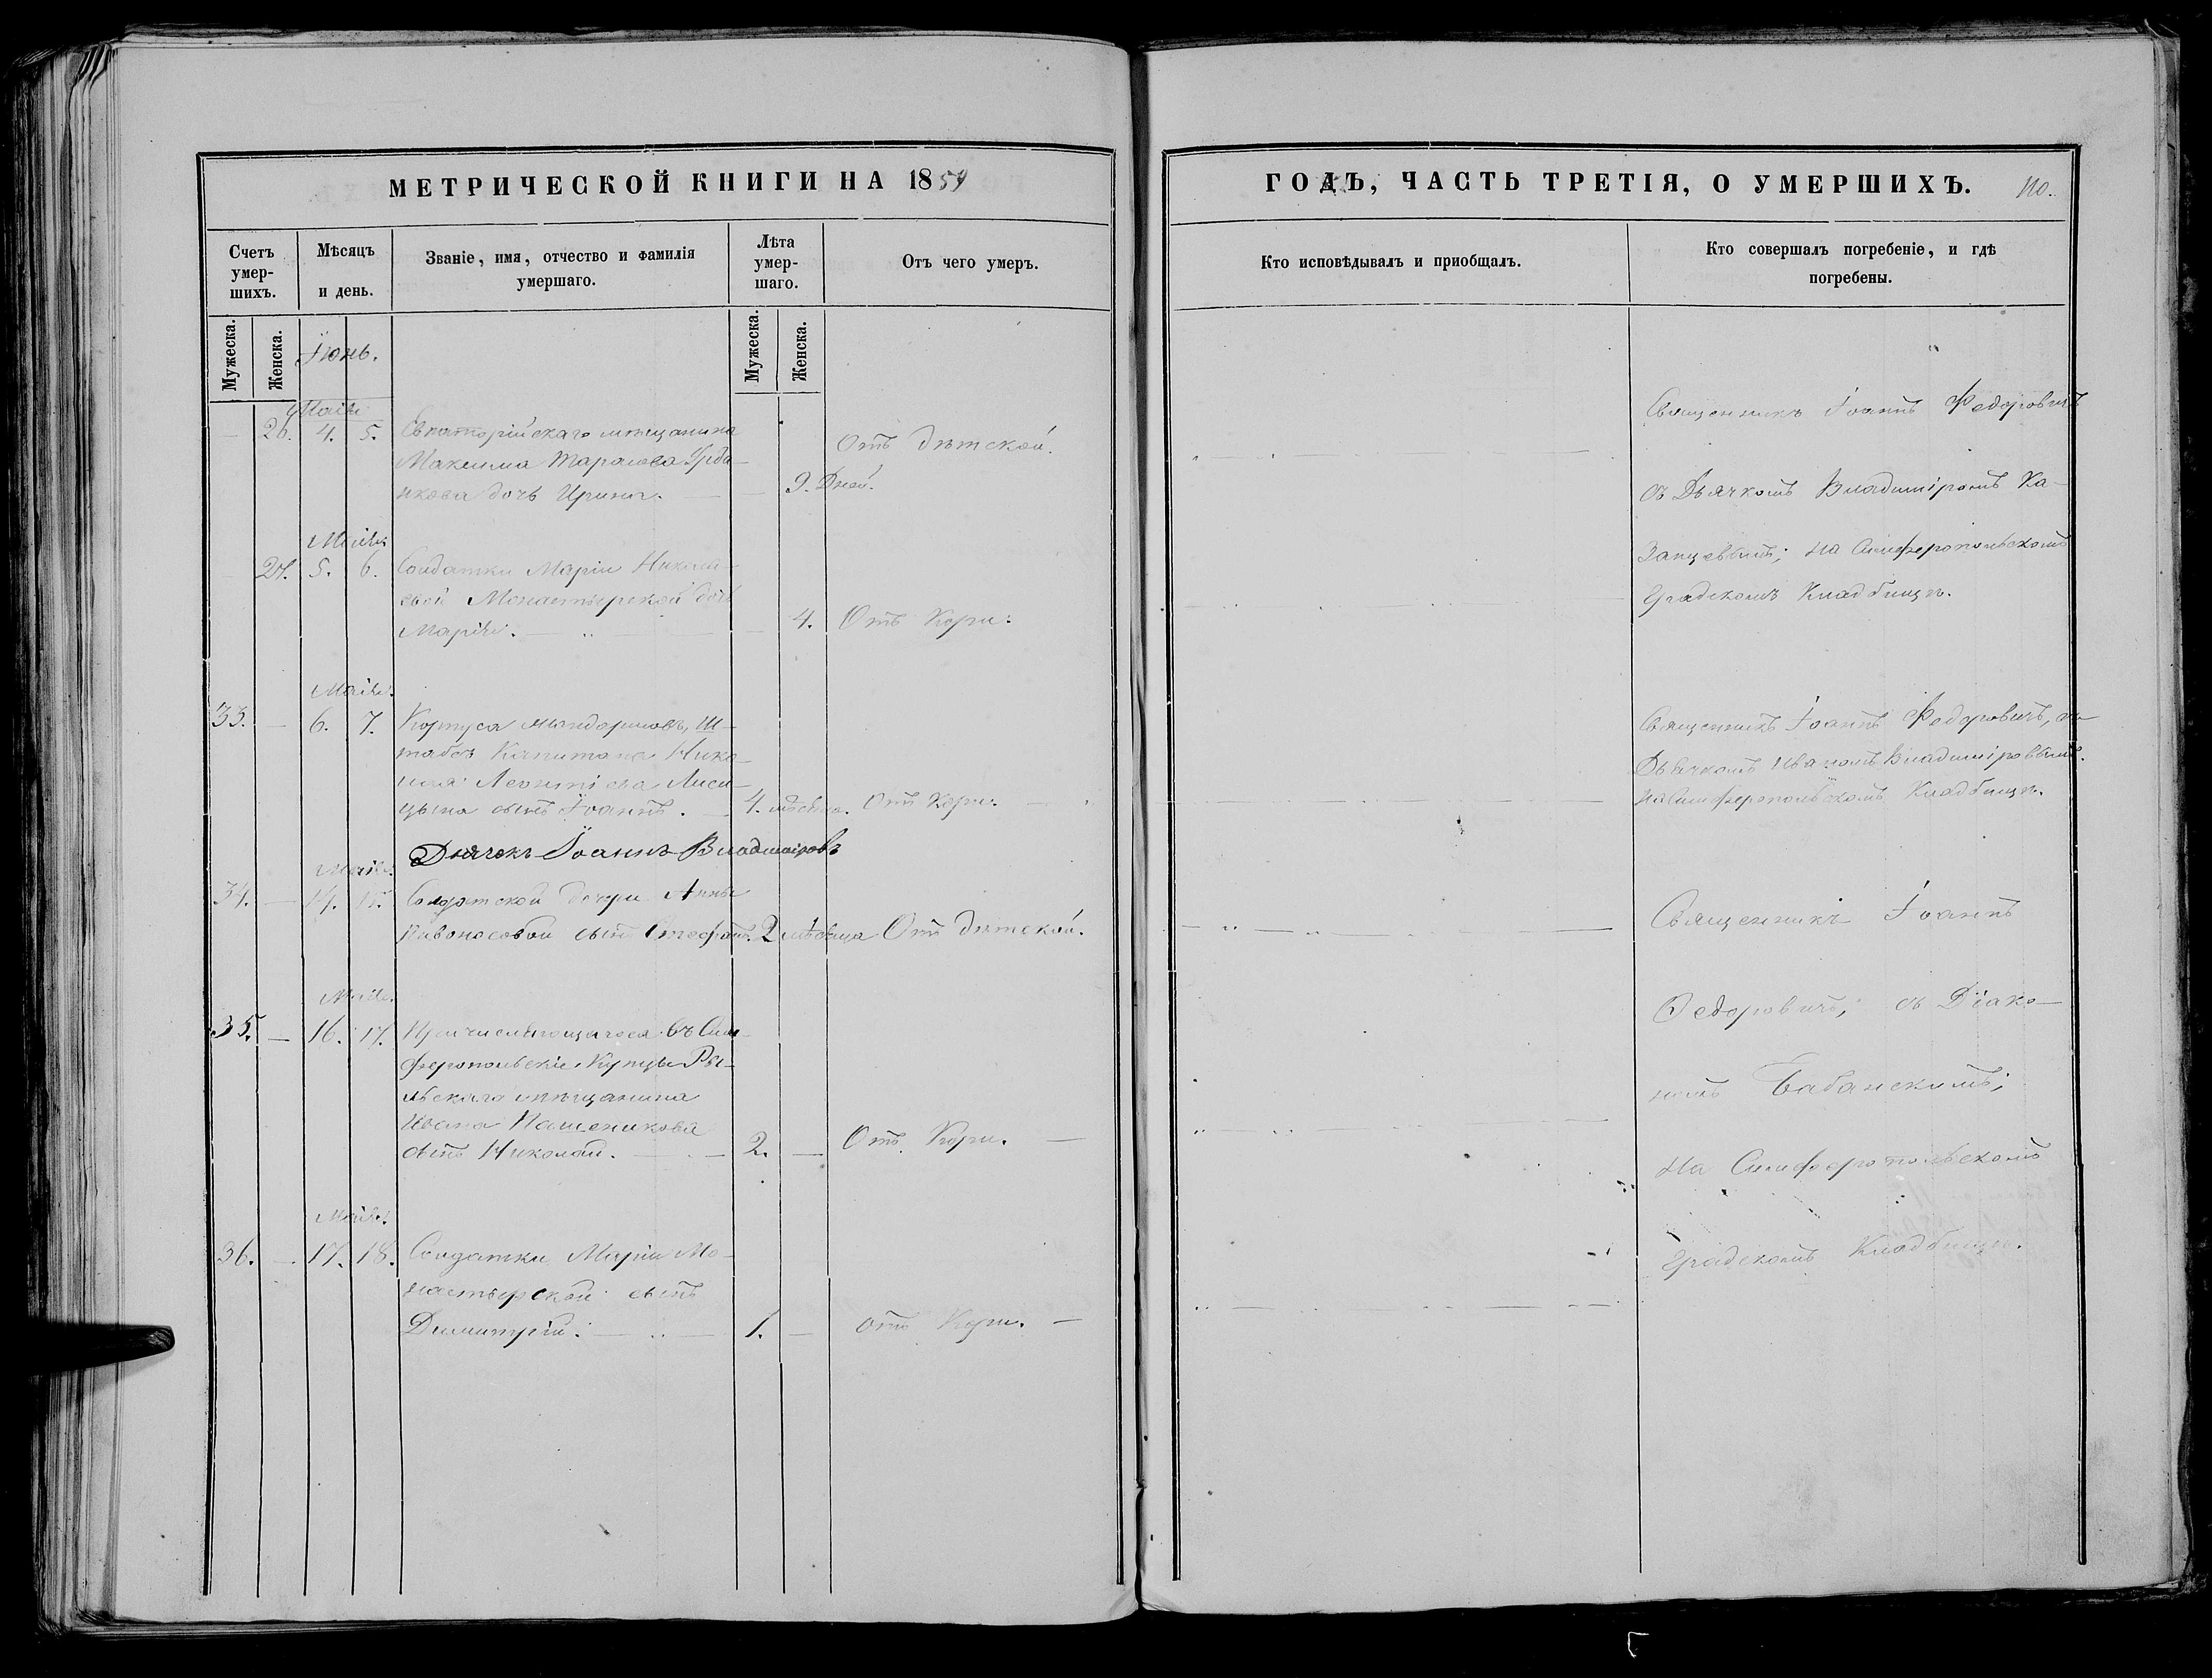 МЕТРИЧЕСКОЙ КНИГИ НА 1859
Счетъ умер-шихъ.
Мѣсяцъ и день.
Званіе, имя, отчество и фамилія умершаго.
Лѣта умер-шаго.
Отъ чего умеръ.
Мужеска.
Женска.
Іюнь.
Мужеска.
Женска.
Маія
26. 4. 5. Евпаторійскаго мѣщанина
Максима Тарасова
дочь Ирина. 9. Дней. Отъ дѣтской.
Маія
27. 5. 6. Солдатки Маріи Никола-
евой Монастырской дочь
Марія. 4. Отъ Кори.
Маія.
33. — 6. 7. Корпуса Жандармовъ, Ш-
табсъ Капитана Нико-
лая Леонтіева Лиси-
цына сынъ Іоаннъ. 4. мѣсяца. Отъ Кори.
Дьячекъ Іоаннъ Владиміровъ
Маія.
34. — 14. 15. Солдатской дочери Анны
Кивоносовой сынъ Стефанъ. 2 мѣсяца Отъ дѣтской.
Маія.
35. — 16. 17. Причисляющагося въ Сим-
феропольскіе Купцы Ры-
льскаго мѣщанина
Ивана
сынъ Николай. 2. — Отъ Кори. —
Маія.
36. — 17. 18. Солдатки Маріи Мо-
настырской сынъ
Димитрій. 1. — Отъ Кори. —
ГОДЪ, ЧАСТЬ ТРЕТІЯ, О УМЕРШИХЪ. 110.
Кто исповѣдывалъ и приобщалъ.
Кто совершалъ погребеніе, и гдѣ погребены.
Священникъ Іоаннъ Федоровичъ
съ Дьячкомъ Владиміромъ Ка-
занцевымъ; на Симферопольскомъ
Градскомъ Кладбищѣ.
Священникъ Іоаннъ Федоровичъ, съ
Дьячкомъ Иваномъ Владиміровымъ.
на Симферопольскомъ Кладбищѣ.
Священникъ Іоаннъ
Федоровичъ; съ Діако-
номъ Бабанскимъ;
на Симферопольскомъ
Градскомъ Кладбищѣ.